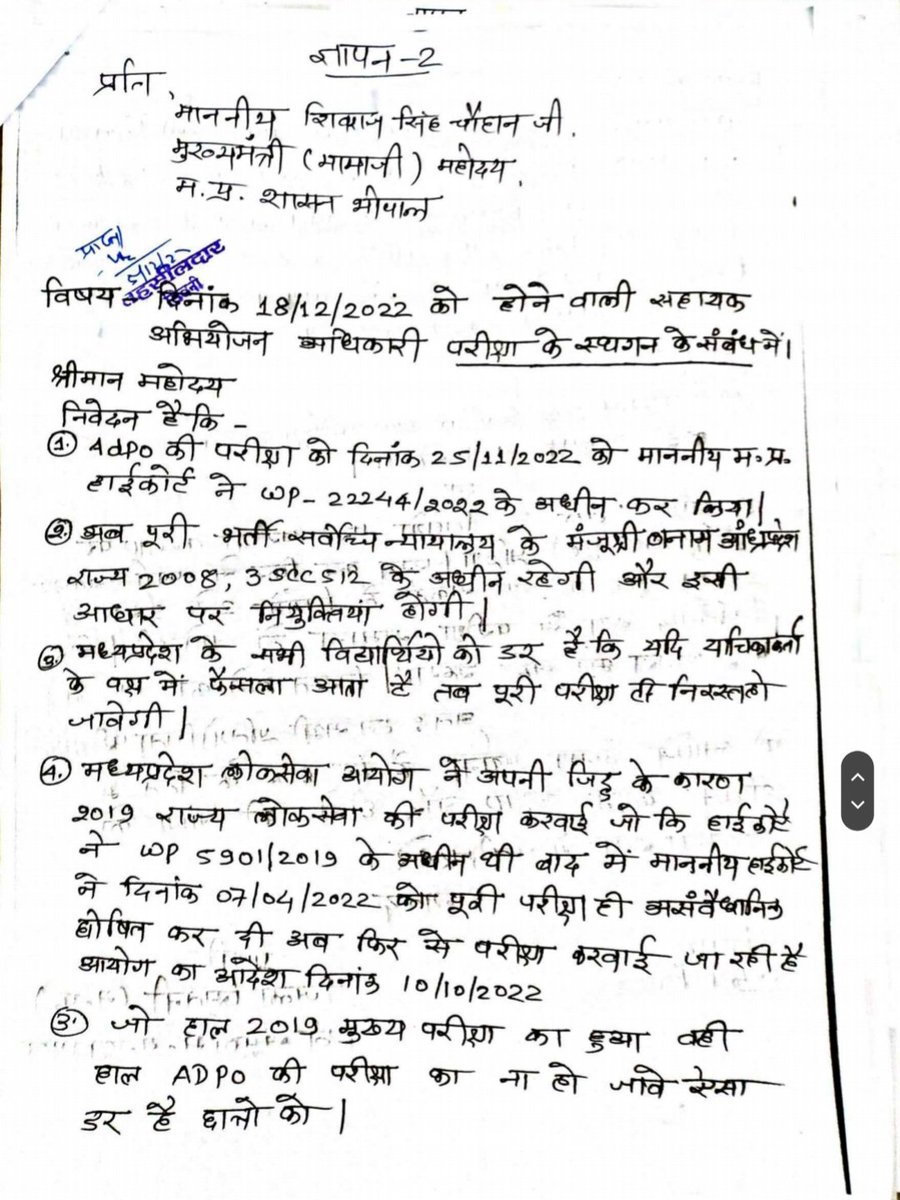 ज्ञापन-2
प्रति,
माननीय शिवराज सिंह चौहान जी.
मुख्यमंत्री (मामाजी) महोदय.
म.प्र. शासन भोपाल
प्राप्त
तहसीलदार
विषय दिनांक 18/12/2022 को होने वाली सहायक
अभियोजन अधिकारी परीक्षा के स्थगन के संबंध में।
श्रीमान महोदय
निवेदन है कि -
1. AdPO की परीक्षा को दिनांक 25/11/2022 को माननीय म.प्र.
हाईकोर्ट ने WP- 22244/2022 के अधीन कर किया।
2. अब पूरी भर्ती सर्वोच्च न्यायालय के मंजूश्री बनाम आंध्रप्रदेश
राज्य 2008, 3 SCC 512 के अधीन रहेगी और इसी
आधार पर नियुक्तियां होगी।
3. मध्यप्रदेश के सभी विद्यार्थियो को डर है कि यदि याचिकाकर्ता
के पक्ष में फैसला आता है तब पूरी परीक्षा ही निरस्त हो
जावेगी।
4. मध्यप्रदेश लोकसेवा आयोग ने अपनी जिद्द के कारण
2019 राज्य लोकसेवा की परीक्षा करवाई जो कि हाईकोर्ट
ने WP 5901/2019 के अधीन थी बाद में माननीय हाईकोर्ट
ने दिनांक 07/04/2022 को पूरी परीक्षा ही असंवैधानिक
घोषित कर दी अब फिर से परीक्षा करवाई जा रही है
आयोग का आदेश दिनांक 10/10/2022
5. जो हाल 2019 मुख्य परीक्षा का हुआ वही
हाल ADPO की परीक्षा का ना हो जावे ऐसा
डर है छात्रो को।